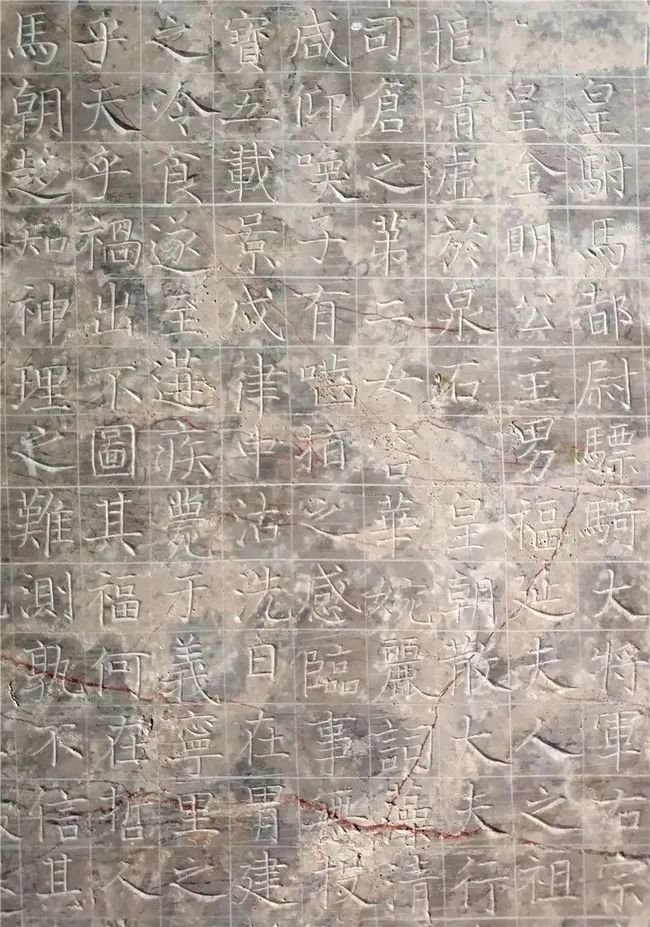 皇駙馬都尉驃騎大將軍右宗
皇金明公主男福延夫人之祖
挹清虛於泉石皇朝散大夫行
司倉之第二女容華婉麗詞藻清
咸仰喚子有嚙指之感臨事投
寶五載景戌律中沽洗日在胃建
之冷食遂至遘疾薨于義寧里之
乎天乎禍出不圖其福何在哲人
馬朝趍知神理之難測孰不信其